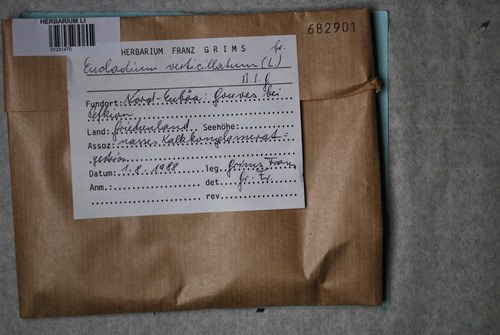 HERBARIUM LI
01251470
682901
HERBARIUM FRANZ GRIMS Gr.
Eucladium verticillatum (L.)
B.S.G
Fundort: Nord-Euböa: Gouves bei
Land: Griechenland Seehöhe:
Assoz: nasses Kalkkonglomerat-
gestein
Datum: 1.8.1988 leg. Grims Franz
Anm.: det. Gr. Fr.
rev.